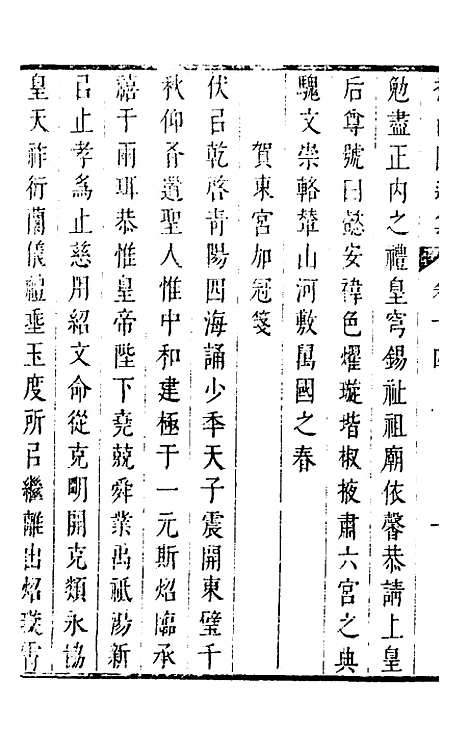 卷十四
勉盡正内之禮皇穹錫祉祖廟依馨恭請上皇
后尊號曰懿安褘色燿璇堦椒掖肅六宮之典
騩文崇輅輦山河敷萬國之春
賀東宮加冠箋
伏㠯乾啓青陽四海誦少秊天子震開東璧千
秋仰斉道聖人惟中和建極于一元斯炤臨承
禧于兩珥恭惟皇帝陛下堯兢舜業禹祇湯新
㠯止孝爲止慈用紹文命從克明開克類永協
皇天祚衍蘭儀禮埀玉度所㠯繼離出炤